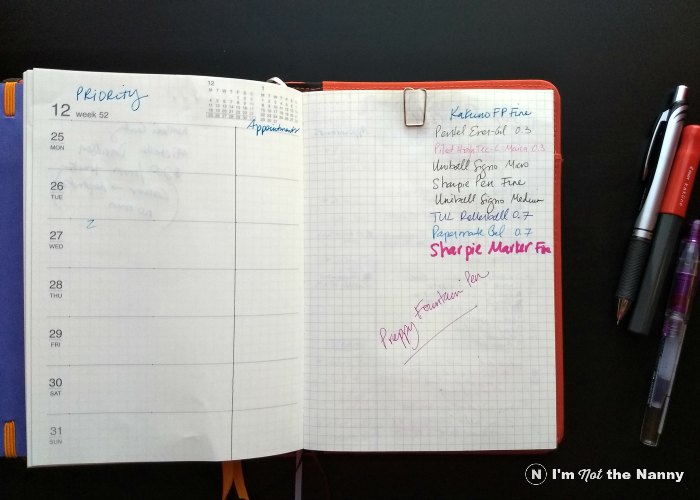 PRIORITY
12 week 52
Appointments
25
MON
26
TUE
27
WED
2
28
THU
29
FRI
30
SAT
31
SUN
Kakuno FP Fine
Pentel Ener-Gel 0.3
Pilot HighTec-C Maica 0.3
Uniball Signo Micro
Sharpie Pen Fine
Uniball Signo Medium
TUL Rollerball 0.7
Papermate Gel 0.7
Sharpie Marker Fine
Preppy Fountain Pen
N I'm Not the Nanny